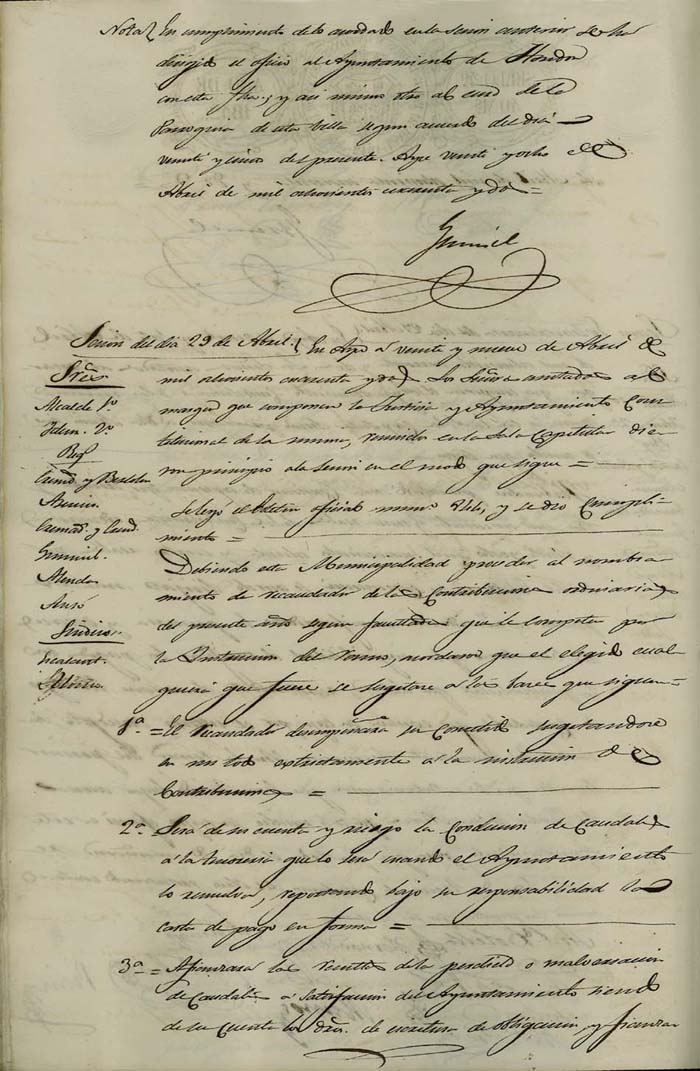 Nota En cumplimiento de lo acordado en la sesion anterior se ha
dirigido el oficio al Ayuntamiento de
con esta fha.; y asi mismo otro al cura de la
Parroquia de esta Villa segun acuerdo del dia
veinte y cinco del presente. Aspe veinte y ocho de
Abril de mil ochocientos cuarenta y dos =
Gumiel
Sesion del dia 29 de Abril.
Sres.
Alcalde 1º
Idem. 2º
Reg.
Cremad. y Cand.
Gumiel.
Almodo
Sindicos.
En Aspe á veinte y nueve de Abril de
mil ochocientos cuarenta y dos Los Señores anotados al
margen que componen la Justicia y Ayuntamiento Cons-
titucional de la misma, reunidos en la Sala Capitular die-
ron principio a la sesion en el modo que sigue =
Se leyó el Boletin oficial numº 846, y se dio Cumpli-
miento =
Debiendo esta Municipalidad proceder al nombra-
miento de recaudador de las Contribuciones ordinarias
del presente año segun facultades que le competen por
la Instruccion del Ramo, acordaron que el elegido cual-
quiera que fuere se sugetare a las bases que siguen =
1ª = El recaudador desempeñara su Cometido sugetandose
en un todo extrictamente á la instruccion de
Contribuciones =
2ª Será de su cuenta y riesgo la Conduccion de Caudales
á la tesoreria que lo será cuando el Ayuntamiento
lo resuelva, reportando bajo su responsabilidad la
carta de pago en forma =
3ª = Afianzará las resultas de la perdida o malversacion
de Caudales á satisfaccion del Ayuntamiento siendo
de su Cuenta los dros. de escritura de obligacion, y fianza